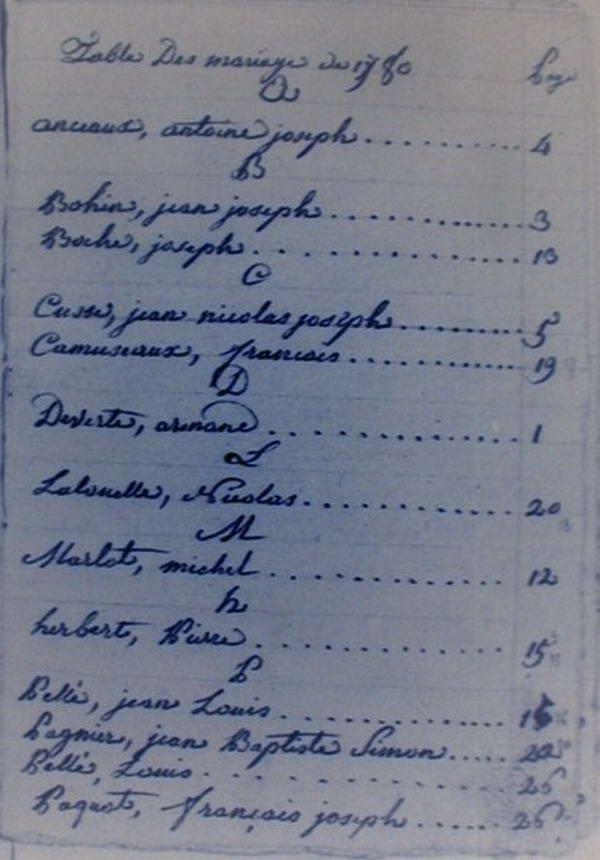 Table Des mariage de 1780 Page
A
anceaux, antoine joseph . . . . . . . . . . . 4
B
Bohin, jean joseph . . . . . . . . . . . . . 3
Boché, joseph . . . . . . . . . . . . . . . 13
C
Cusse, jean nicolas joseph . . . . . . . . . . 5
Camuseaux, francois . . . . . . . . . . . . 19
D
Deverte, armand . . . . . . . . . . . . . . 1
L
Lalouelle, Nicolas . . . . . . . . . . . . . 20
M
Marlot, michel . . . . . . . . . . . . . . 12
h
herbert, Pierre . . . . . . . . . . . . . . 15
P
Pellé, jean Louis . . . . . . . . . . . . .
Pagnier, jean Baptiste Simon . . . . .
Pellé, Louis . . . . . . . . . . . . .
Paquot, françois joseph . . . . . . 26